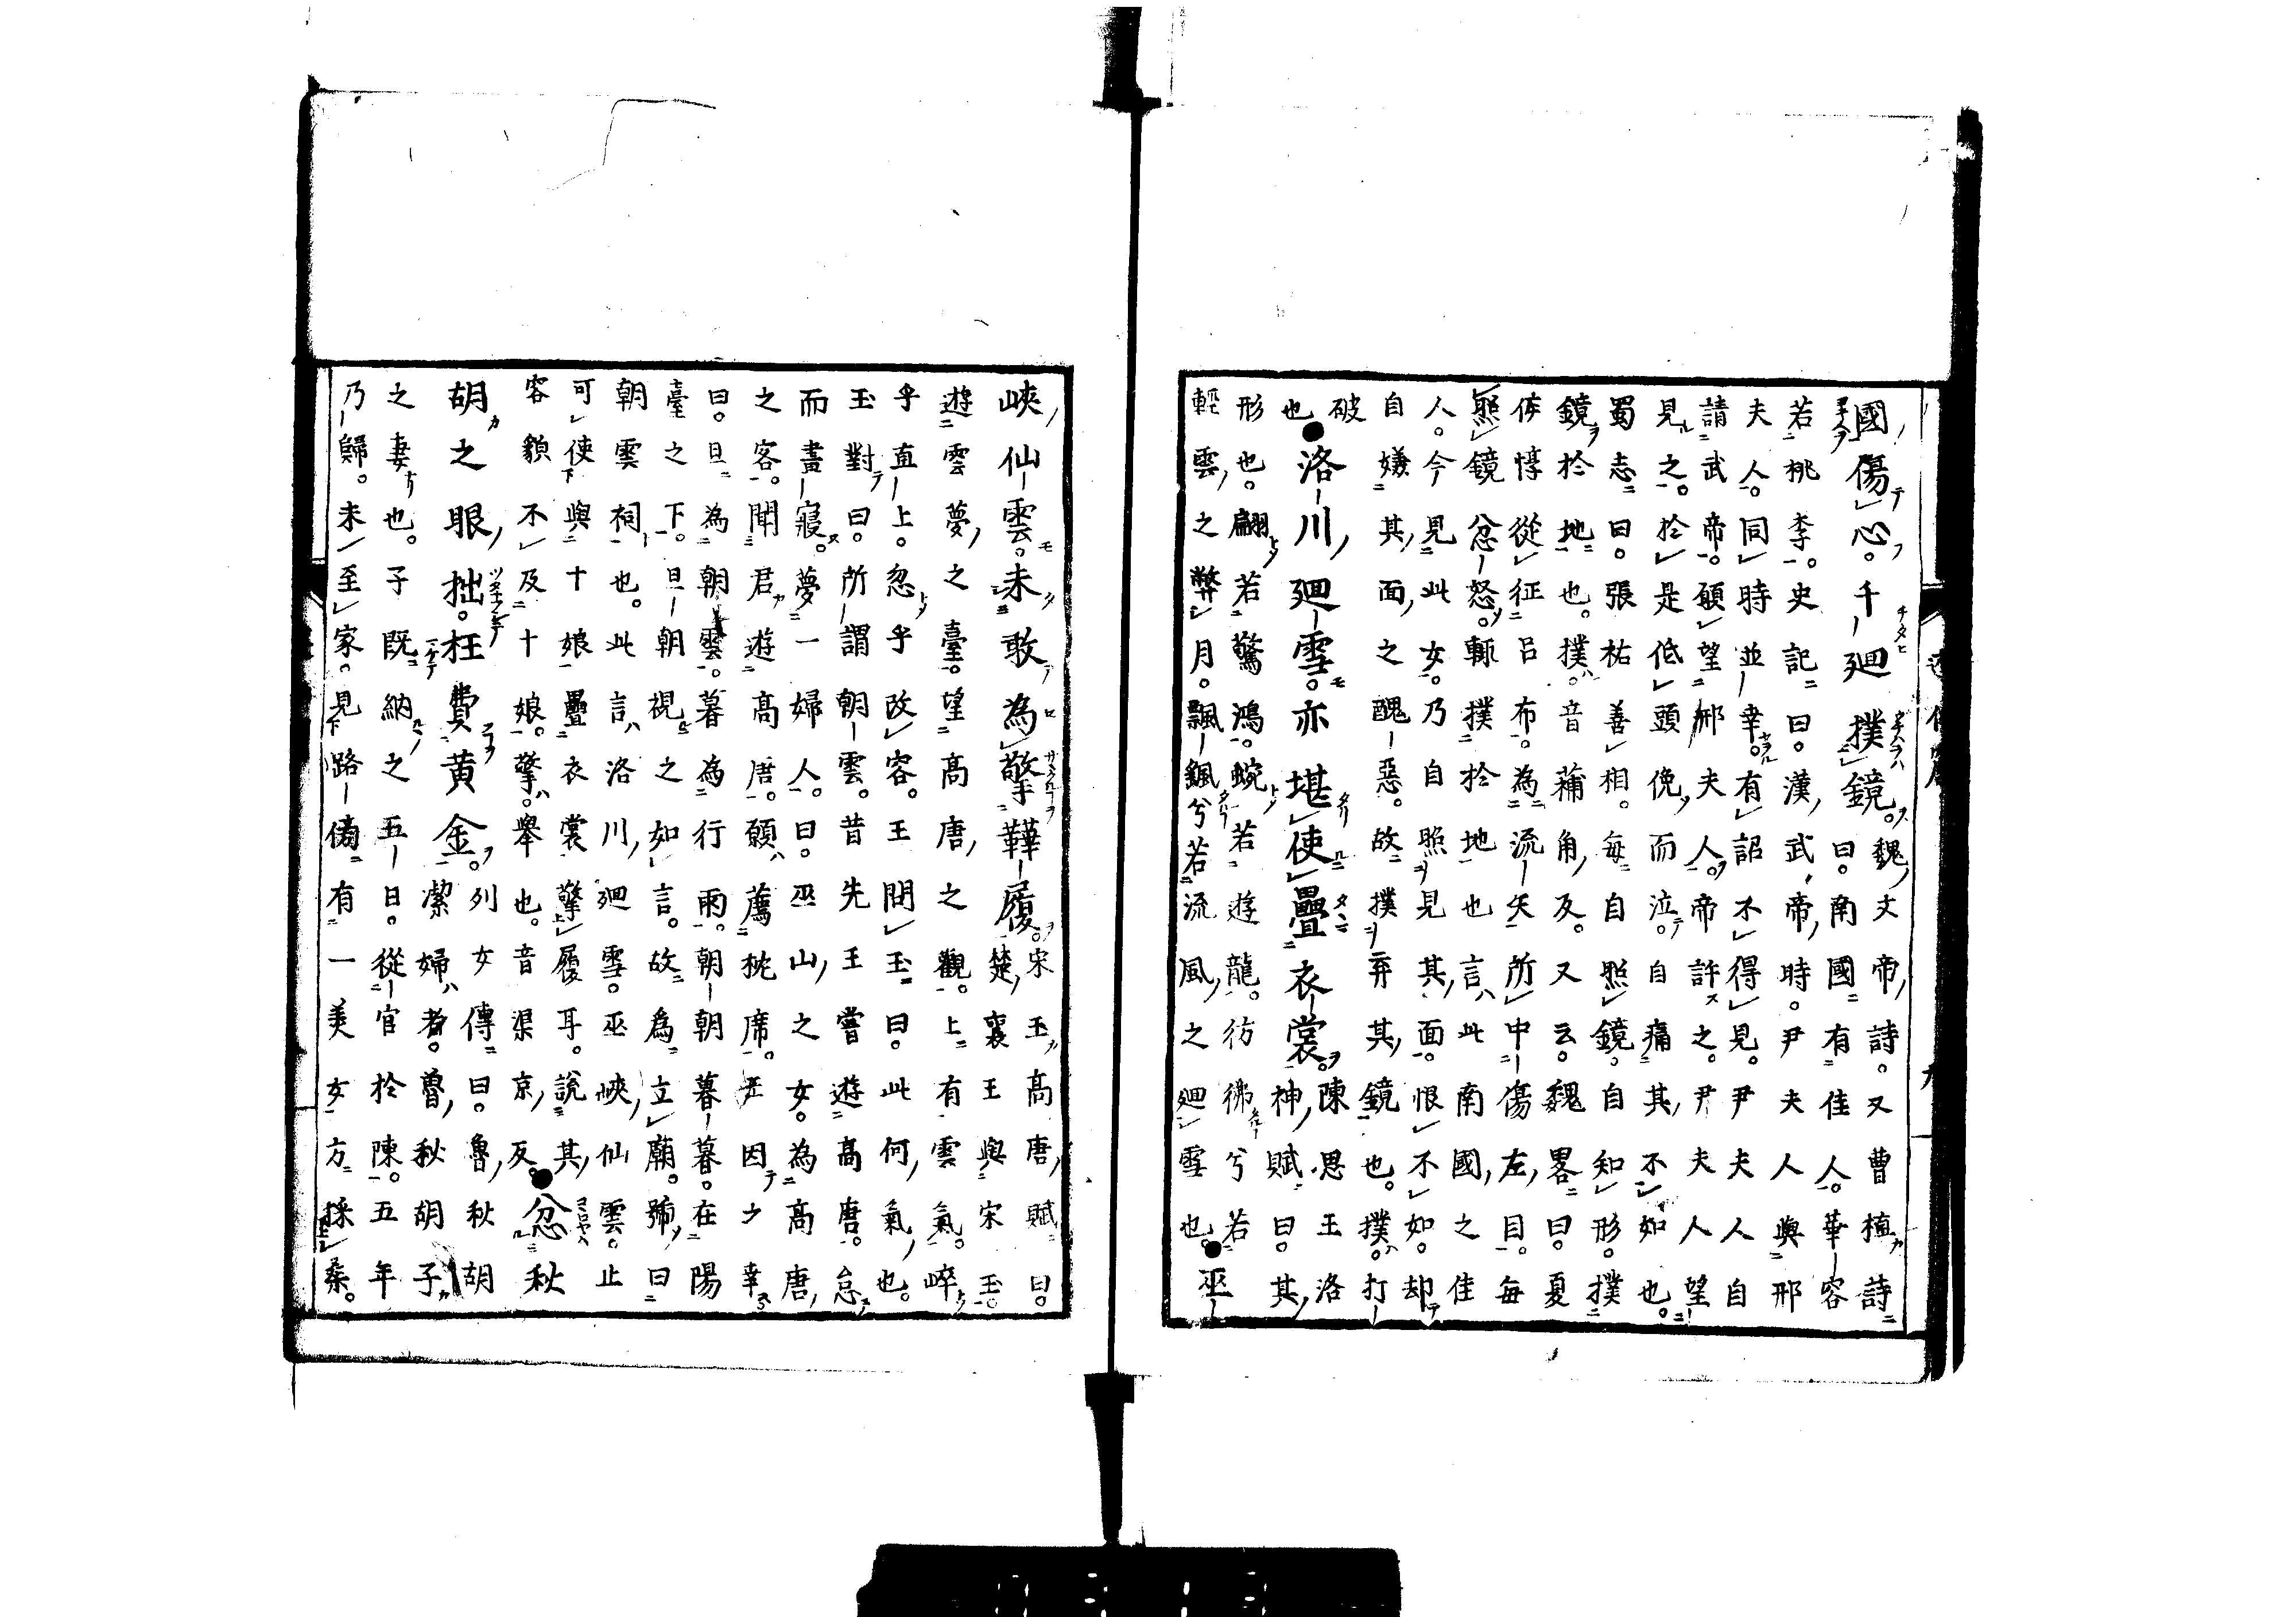 國傷心。千廻撲鏡。魏文帝詩。又曹植詩
曰。南國有佳人。華容
若桃李。史記曰。漢武帝時。尹夫人與邢
夫人。同時並幸。有詔不得見。尹夫人自
請武帝。願望邢夫人。帝許之。尹夫人望
見之。於是低頭俛而泣。自痛其不如也。
蜀志曰。張祐善相。每自照鏡。自知形。撲
鏡於地也。撲。音蒲角反。又云。魏畧曰。夏
侯惇從征呂布。為流矢所中傷左目。每
照鏡忿怒。輙撲於地也言此南國之佳
人。今見此女。乃自照見其面。恨不如。却
自嫌其面之醜惡。故撲弃其鏡也。撲。打
破
也●洛川廻雪。亦堪使疊衣裳。陳思王洛
神賦曰。其
形也。翩若驚鴻。蜿若遊龍。彷彿兮若
輕雲之弊月。飄颻兮若流風之廻雪也●巫
峽仙雲。未敢為擎鞾履。宋玉高唐賦曰。
楚襄王與宋玉。
遊雲夢之臺。望高唐之觀。上有雲氣。崪
乎直上。忽乎改容。王問玉曰。此何氣也。
玉對曰。所謂朝雲。昔先王嘗遊高唐。怠
而晝寢。夢一婦人。曰巫山之女。為高唐
之客。聞君遊高唐。願薦枕席。王因之幸
曰。旦為朝雲。暮為行雨。朝朝暮暮。在陽
臺之下。旦朝視之如言。故為立廟。號曰
朝雲祠也。此言洛川廻雪。巫峽仙雲。止
可使與十娘疊衣裳擎履耳。說其
容貌不及十娘。擎。舉也。音渠京反。●忿秋
胡之眼拙。枉費黃金。列女傳曰。魯秋胡
潔婦者。魯秋胡子
之妻也。子既納之五日。從官於陳。五年
乃歸。未至家。見路傍有一美女方採桑。